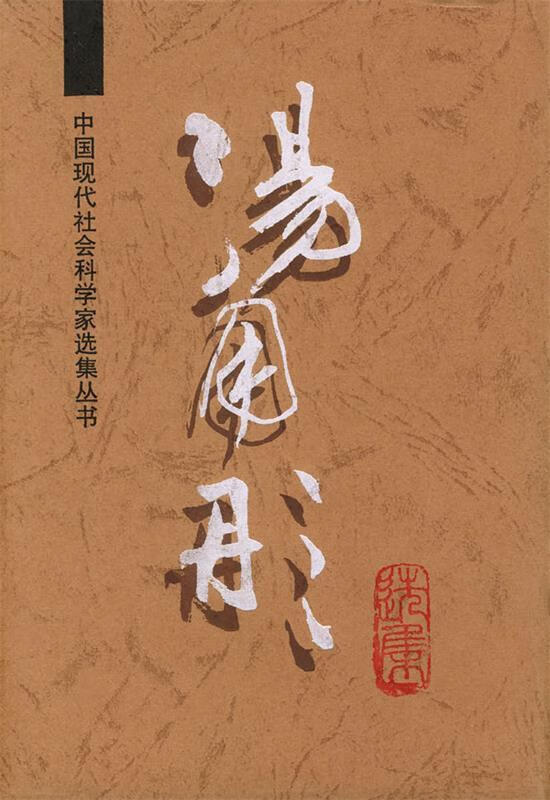 中国现代社会科学家选集丛书
湯用彤
选集